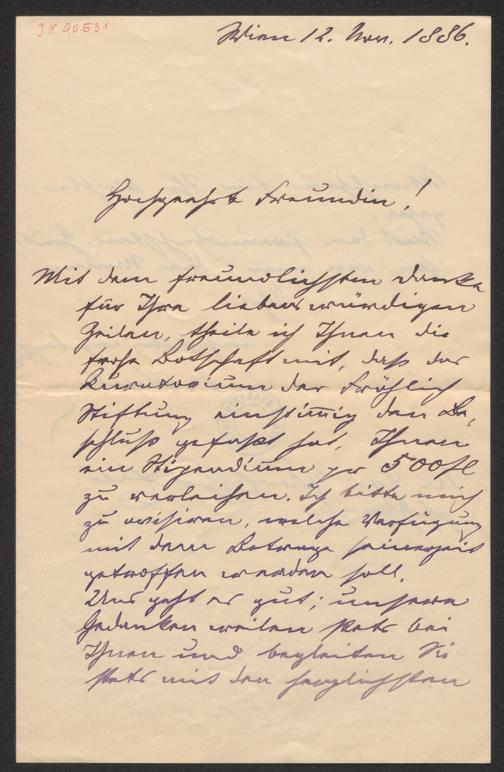 J.N. 90.531
Wien 12. Nov. 1886.
Hochgeehrte Freundin!
Mit dem freundlichsten Danke
für Ihre liebenswürdigen
Zeilen, theile ich Ihnen die
frohe Botschaft mit, daß das
Kuratorium der Fröhlich
Stiftung einstimmig den Be,
schluß gefaßt hat, Ihnen
ein Stipendium pr 500 fl
zu verleihen. Ich bitte mich
zu avisiren, welche Verfügung
mit dem Betrage seinerzeit
getroffen werden soll.
Uns geht es gut; unsere
Gedanken weilen stets bei
Ihnen und begleiten Sie
stets mit den herzlichsten